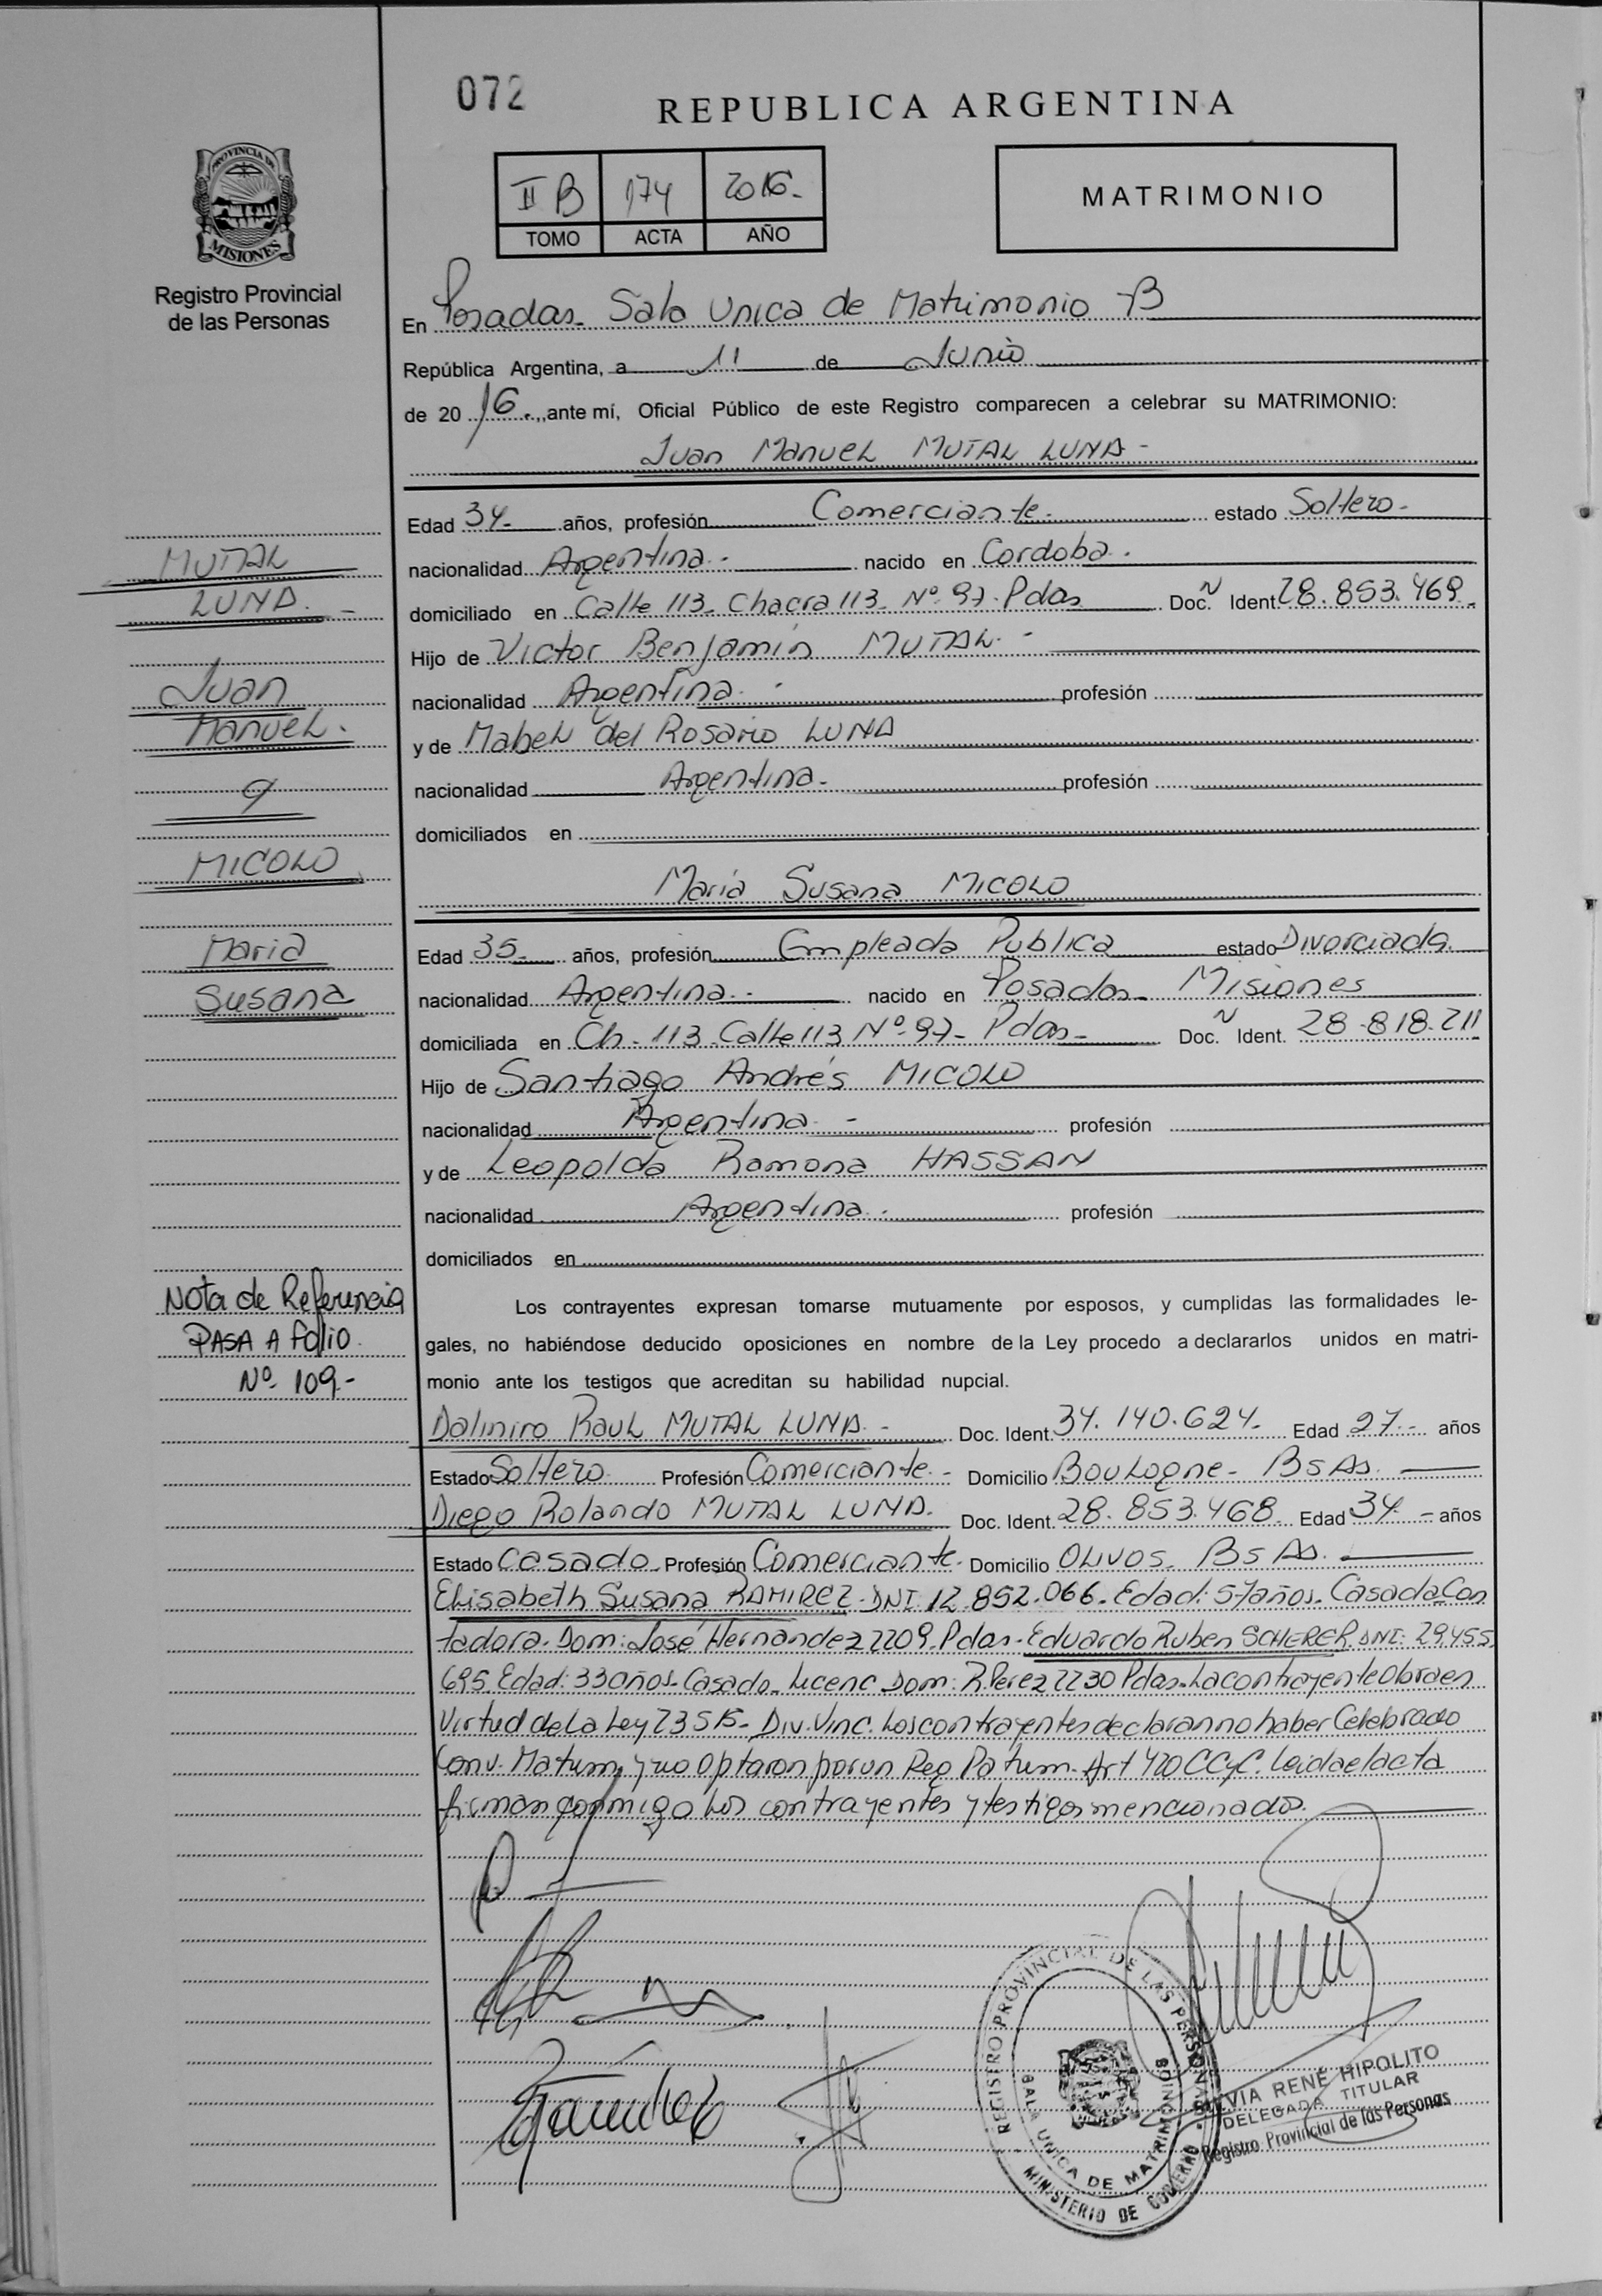 072
REPUBLICA ARGENTINA
PROVINCIA DE
MISIONES
Registro Provincial
de las Personas
II B 174 2016.-
TOMO ACTA AÑO
MATRIMONIO
En Posadas. Sala Unica de Matrimonio B
República Argentina, a 11 de Junio
de 2016., ante mí, Oficial Público de este Registro comparecen a celebrar su MATRIMONIO:
Juan Manuel MUTAL LUNA -
Edad 34- años, profesión Comerciante. estado Soltero-
nacionalidad Argentina.- nacido en Cordoba.
domiciliado en Calle 113- Chacra 113- Nº 97- Pdas Doc. Ident. 28.853.469-
Hijo de Victor Benjamin MUTAL.-
nacionalidad Argentina. profesión
y de Mabel del Rosario LUNA
nacionalidad Argentina- profesión
domiciliados en
Maria Susana MICOLO
Edad 35- años, profesión Empleada Publica estado Divorciada.
nacionalidad Argentina.- nacido en Posadas- Misiones
domiciliada en Ch- 113- Calle 113 Nº 97- Pdas- Doc. Ident. 28.818.211
Hijo de Santiago Andrés MICOLO
nacionalidad Argentina- profesión
y de Leopolda Ramona HASSAN
nacionalidad Argentina. profesión
domiciliados en
MUTAL
LUNA.-
Juan
Manuel.
y
MICOLO
Maria
Susana
Nota de Referencia
PASA A folio
Nº 109-
Los contrayentes expresan tomarse mutuamente por esposos, y cumplidas las formalidades le-
gales, no habiéndose deducido oposiciones en nombre de la Ley procedo a declararlos unidos en matri-
monio ante los testigos que acreditan su habilidad nupcial.
Dalmiro Raul MUTAL LUNA.- Doc. Ident. 34.140.624- Edad 27.- años
Estado Soltero Profesión Comerciante- Domicilio Boulogne- Bs As.
Diego Rolando MUTAL LUNA. Doc. Ident. 28.853.468. Edad 34- años
Estado Casado. Profesión Comerciante. Domicilio Olivos. Bs As.
Elisabeth Susana RAMIREZ- DNI 12.852.066. Edad: 57 años. Casada Con
tadora. Dom: José Hernandez 2209. Pdas- Eduardo Ruben SCHERER. DNI: 29.455.
695. Edad: 33 años- Casado. Licenc Dom: R. Perez 2230 Pdas. La contrayente Obra en
Virtud de La Ley 23515- Div. Vinc. Los contrayentes declaran no haber Celebrado
Conv. Matrim. y no optaron por un Reg Patrim- Art 420 CCyC. Leida el acta
firman conmigo Los contrayentes y testigos mencionados.
REGISTRO PROVINCIAL DE LAS PERSONAS
SALA UNICA DE MATRIMONIOS
MINISTERIO DE GOBIERNO
SILVIA RENÉ HIPOLITO
DELEGADA TITULAR
Registro Provincial de las Personas